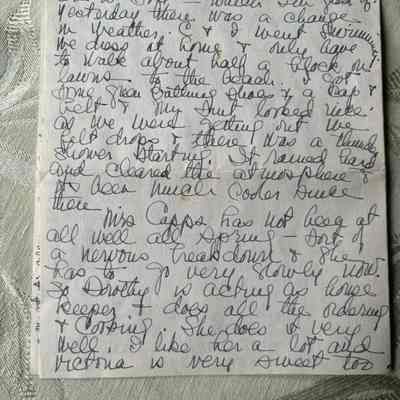 Yesterday there was a change
in weather. C & I went swimming.
We dress at home & only have
to walk about half a block on
lawns to the beach. I got
some green bathing shoes & a cap &
belt & my suit looked nice.
as we were getting out we
felt drops & there was a thunder
shower starting. It rained hard
and cleared the atmosphere &
it been much cooler since
then.
Mrs Capps has not been at
all well all Spring - sort of
a nervous breakdown & she
has to go very slowly now.
So Dorothy is acting as house
keeper & does all the ordering
& cooking. She does it very
well. I like her a lot and
Victoria is very sweet too